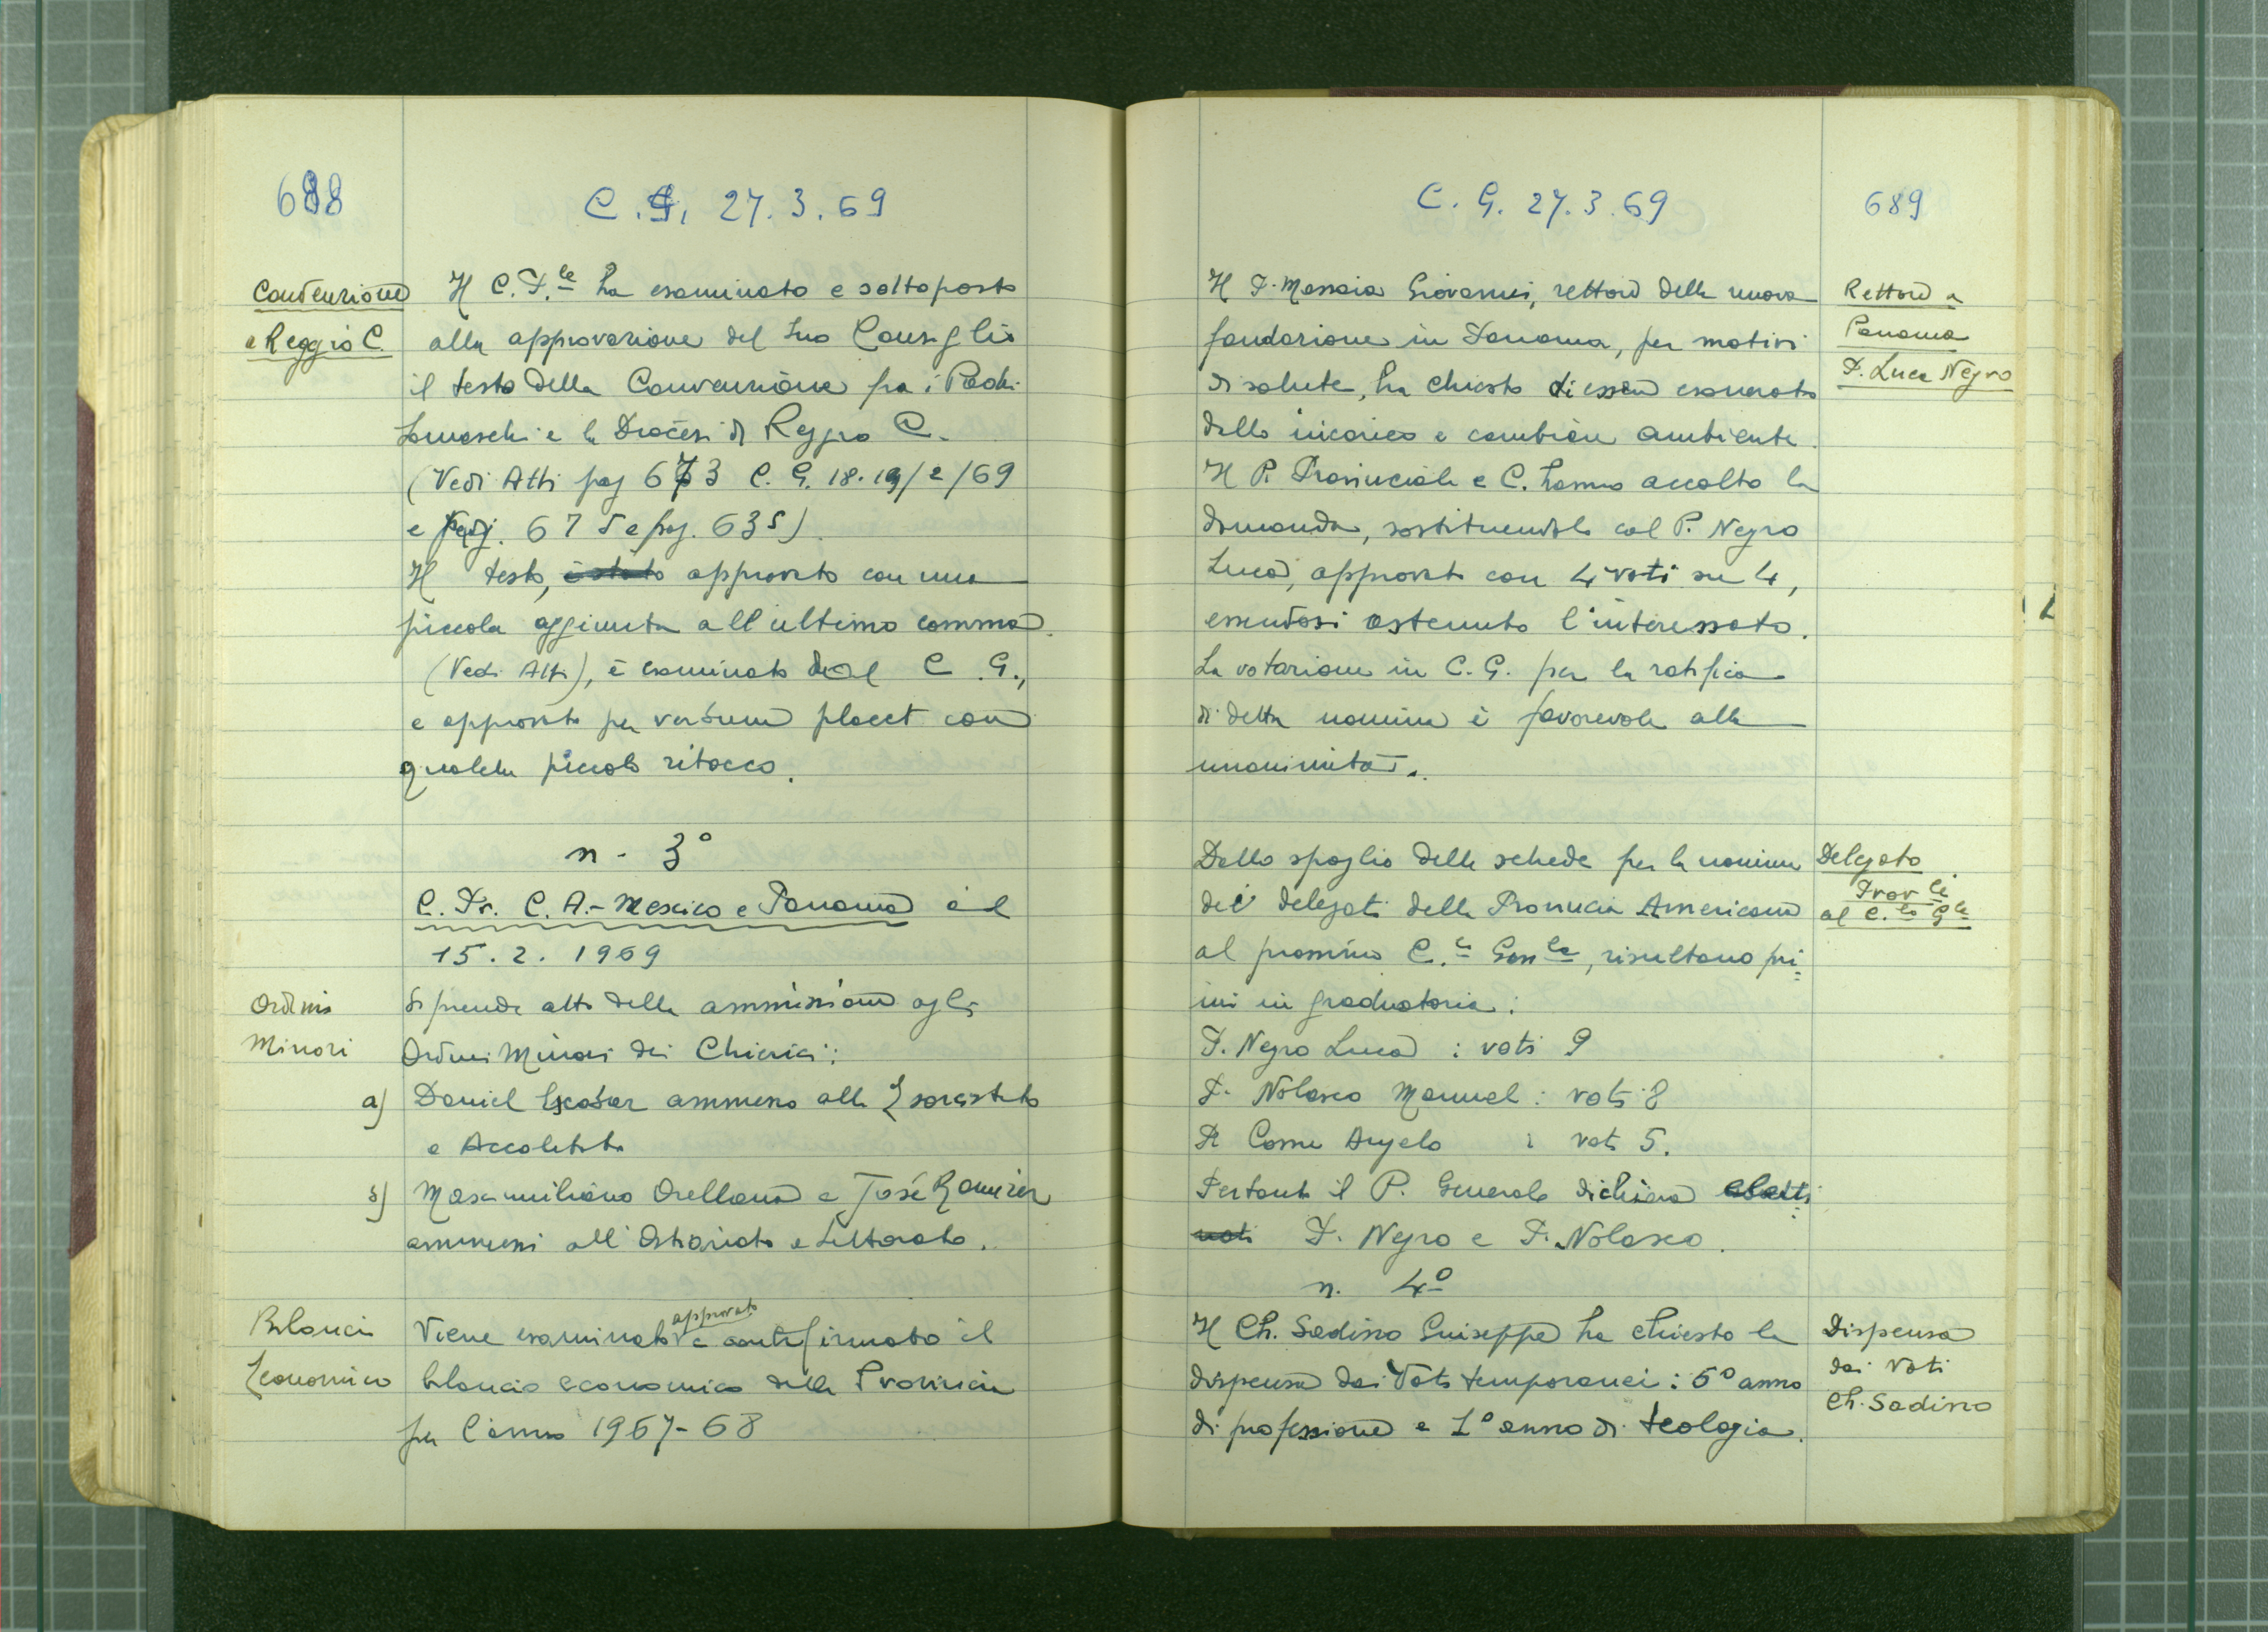 688
C. G. 27.3.69
Convenzione
a Reggio C.
Il C. P.le ha esaminato e sottoposto
alla approvazione del suo Consiglio
il testo della Convenzione fra i Padri
Somaschi e la Diocesi di Reggio C.
(Vedi Atti pag 673 C. G. 18.19/2/69
e pag. 675 e pag. 635)
Il testo, è stato approvato con una
piccola aggiunta all'ultimo comma
(Vedi Atti), è esaminato dal C. G.,
e approvato per verbum placet con
qualche piccolo ritocco.
n. 3°
C. Pr. C. A. - Mexico e Panama
15.2.1969
Ordini
Minori
Si prende atto della ammissione agli
Ordini Minori dei Chierici:
a) Daniel Escobar ammesso allo Esorcistato
e Accolitato
b) Massimiliano Orellana e José Ramirez
ammessi all'Ostiariato e Lettorato.
Bilancio
Economico
Viene esaminato approvato e controfirmato il
bilancio economico della Provincia
per l'anno 1967-68
C. G. 27.3.69
689
Il P. Massaia Giovanni, rettore della nuova
fondazione in Panama, per motivi
di salute, ha chiesto di essere esonerato
dallo incarico e cambiare ambiente.
Il P. Provinciale e C. hanno accolto la
domanda, sostituendolo col P. Negro
Luca, approvato con 4 voti su 4,
essendosi astenuto l'interessato.
La votazione in C. G. per la ratifica
di detta nomina è favorevole alla
unanimità.
Rettore a
Panama
P. Luca Negro
Dallo spoglio delle schede per la nomina
dei delegati della Provincia Americana
al prossimo C. Gen.le, risultano pri=
mi in graduatoria:
Delegato
Prov.li
al C.lo G.le
P. Negro Luca : voti 9
P. Nolasco Manuel : voti 8
P. Come Angelo : voti 5.
Pertanto il P. Generale dichiara eletti
voti P. Negro e P. Nolasco.
n. 4°
Il Ch. Sadino Giuseppe ha chiesto la
dispensa dai Voti temporanei : 5° anno
di professione e 1° anno di teologia.
Dispensa
dai Voti
Ch. Sadino